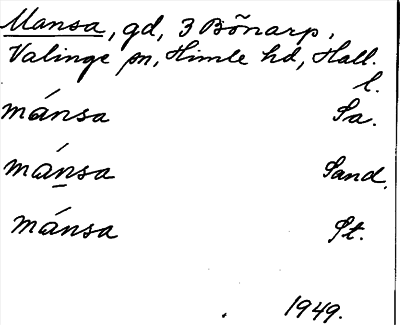 Mansa, gd, 3 Bönarp,
Valinge sn, Himle hd, Hall.
l.
mánsa Sa.
mánsa Sand.
mánsa St.
1949.